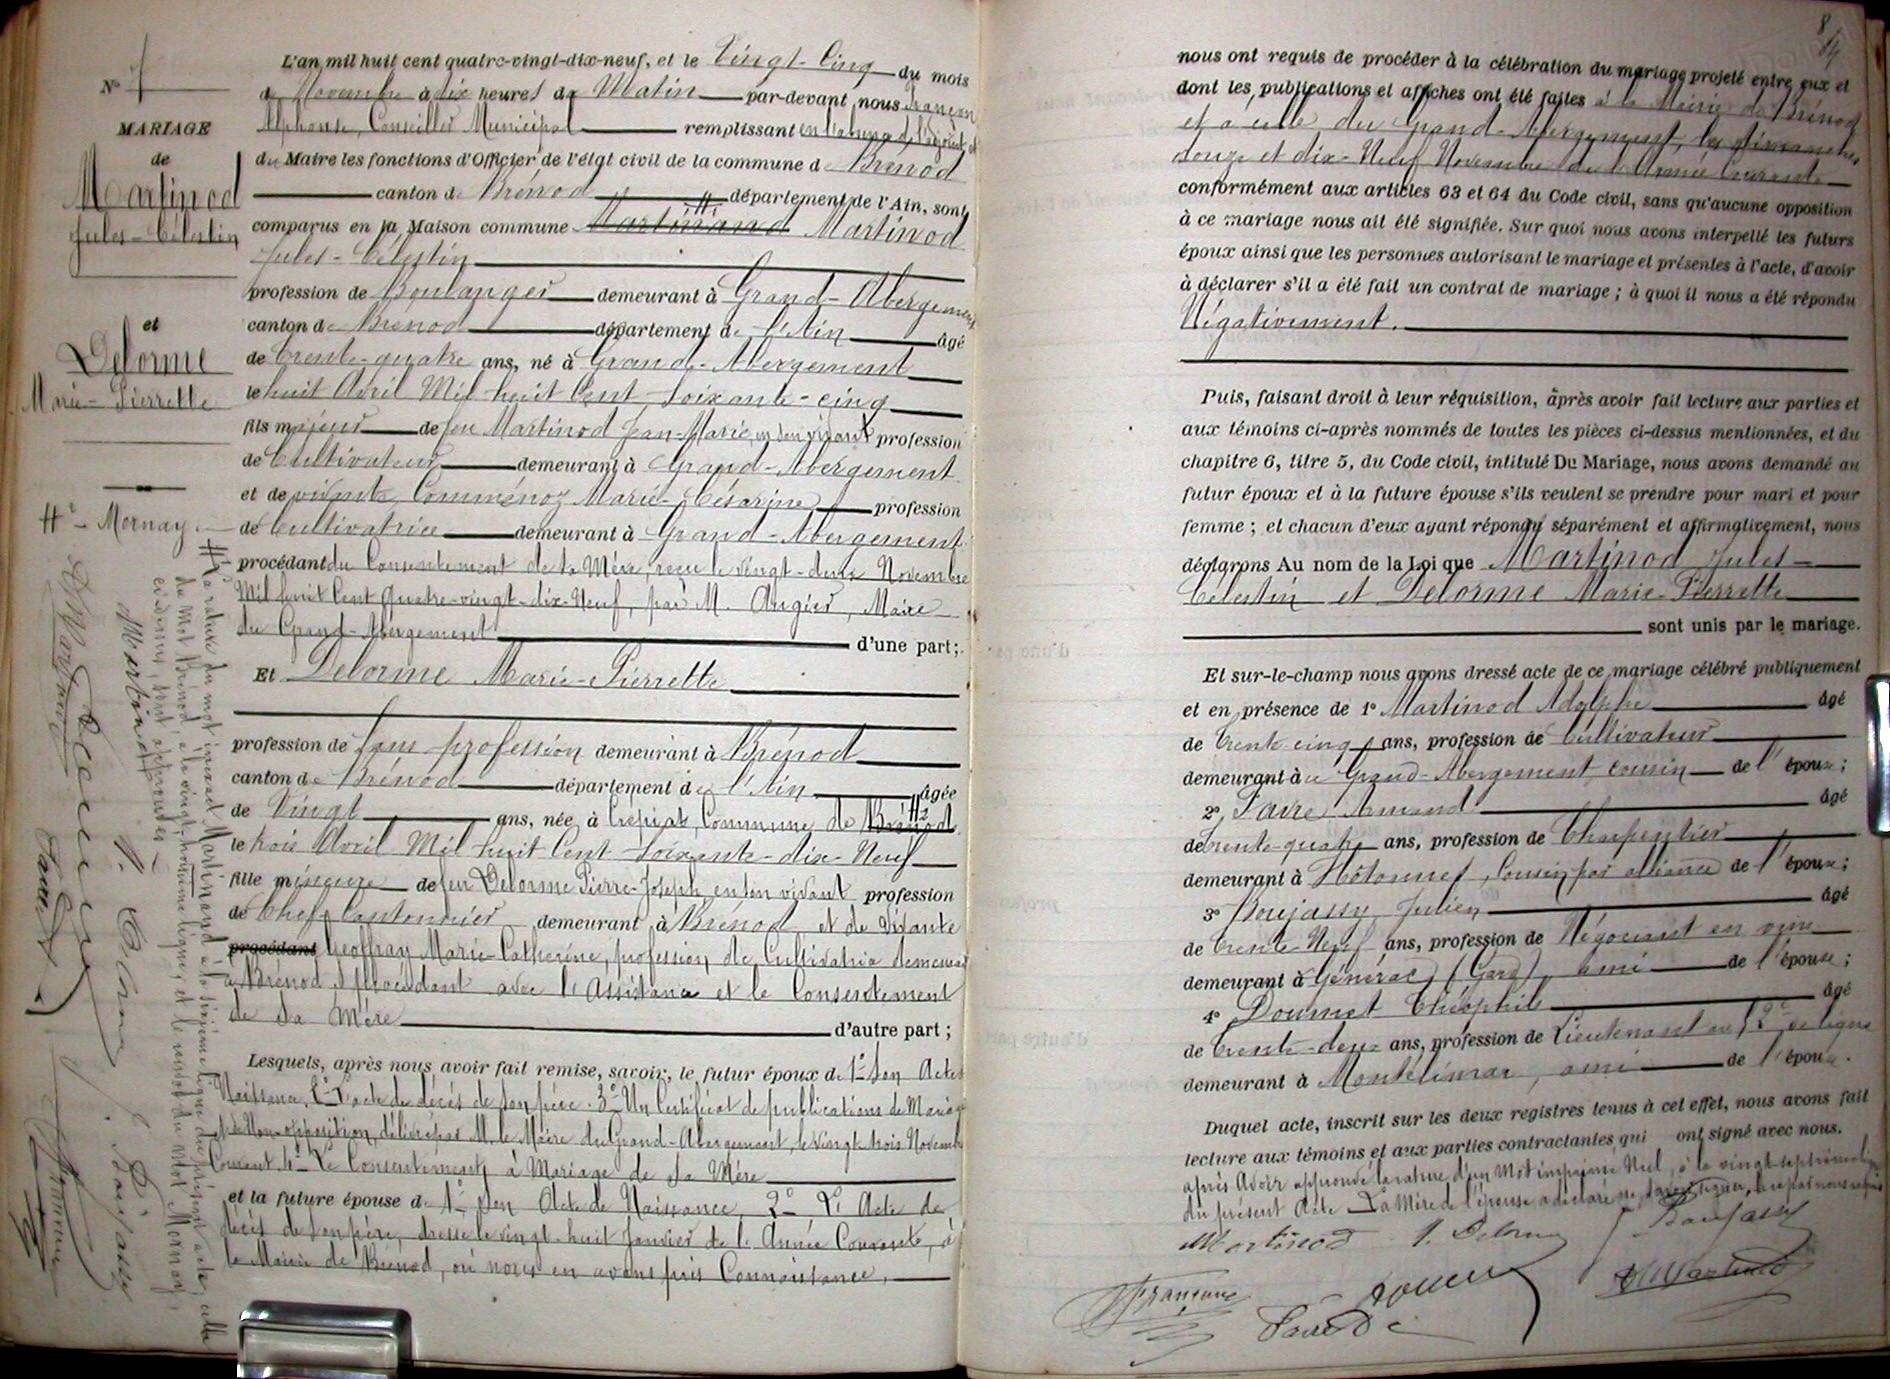 N° 7
MARIAGE
de
Martinod
Jules-Célestin
et
Delorme
Marie-Pierrette
#2 - Mornay.
# La rature du mot Martinand à la sixième ligne du présent acte, celle
du Mot Brénod, à la vingt- ligne, et le renvoi du Mot Mornay,
ci-dessus, sont approuvés.
Martinod
P. Delorme
J. Boujassy
L'an mil huit cent quatre-vingt-dix-neuf, et le Vingt-Cinq du mois
de Novembre à dix heures du Matin par-devant nous Françon
Alphonse, Conseiller Municipal remplissant en l'absence de l'adjoint et
du Maire les fonctions d'Officier de l'état civil de la commune de Brénod
canton de Brénod département de l'Ain, sont
comparus en la Maison commune Martinand Martinod
Jules-Célestin
profession de Boulanger demeurant à Grand-Abergement
canton de Brénod département de l'Ain âgé
de trente-quatre ans, né à Grand-Abergement
le huit Avril Mil huit Cent Soixante-cinq
fils majeur de feu Martinod Jean-Marie, en son vivant profession
de Cultivateur demeurant à Grand-Abergement
et de vivante Comménoz Marie-Césarine profession
de Cultivatrice demeurant à Grand-Abergement
procédant du Consentement de la Mère, reçu le vingt-deux Novembre
Mil huit Cent Quatre-vingt-dix-Neuf, par M. Augier, Maire
du Grand-Abergement d'une part;
Et Delorme Marie-Pierrette
profession de Sans profession demeurant à Brénod
canton de Brénod département de l'Ain âgée
de Vingt ans, née à Crépiat, Commune de Brénod #2
le trois Avril Mil huit Cent Soixante-dix-Neuf
fille mineure de feu Delorme Pierre-Joseph, en son vivant profession
de Chef Cantonnier demeurant à Brénod et de Vivante
procédant Geoffray Marie-Catherine, profession de Cultivatrice demeurant
à Brénod procédant avec l'Assistance et le Consentement
de sa Mère d'autre part;
Lesquels, après nous avoir fait remise, savoir, le futur époux de 1° Son Acte de
Naissance, 2° L'acte de décès de son père. 3° Un Certificat de publications de Mariage
et de Non-opposition, délivré par M. le Maire du Grand-Abergement, le vingt-trois Novembre
Courant 4° Le Consentement à Mariage de sa Mère
et la future épouse de 1° Son Acte de Naissance, 2° L'Acte de
décès de son père, dressé le vingt-huit Janvier de l'Année Courante, à
la Mairie de Brénod, où nous en avons pris Connaissance,
8
nous ont requis de procéder à la célébration du mariage projeté entre eux et
dont les publications et affiches ont été faites à la Mairie de Brénod
et à celle du Grand-Abergement, les dimanches
douze et dix-Neuf Novembre de l'Année Courante
conformément aux articles 63 et 64 du Code civil, sans qu'aucune opposition
à ce mariage nous ait été signifiée. Sur quoi nous avons interpellé les futurs
époux ainsi que les personnes autorisant le mariage et présentes à l'acte, d'avoir
à déclarer s'il a été fait un contrat de mariage; à quoi il nous a été répondu
Négativement.
Puis, faisant droit à leur réquisition, après avoir fait lecture aux parties et
aux témoins ci-après nommés de toutes les pièces ci-dessus mentionnées, et du
chapitre 6, titre 5, du Code civil, intitulé Du Mariage, nous avons demandé au
futur époux et à la future épouse s'ils veulent se prendre pour mari et pour
femme; et chacun d'eux ayant répondu séparément et affirmativement, nous
déclarons Au nom de la Loi que Martinod Jules-
Célestin et Delorme Marie-Pierrette
sont unis par le mariage.
Et sur-le-champ nous avons dressé acte de ce mariage célébré publiquement
et en présence de 1° Martinod Adolphe âgé
de trente-cinq ans, profession de Cultivateur
demeurant à Grand-Abergement, cousin de l'époux;
2° Favre Armand âgé
de trente-quatre ans, profession de Charpentier
demeurant à Hotonnes, Cousin par alliance de l'époux;
3° Boujassy Julien âgé
de trente-Neuf ans, profession de Négociant en vins
demeurant à Générac (Gard), ami de l'épouse;
4° Doumet Théophile âgé
de trente-deux ans, profession de Lieutenant au 52e de ligne
demeurant à Montélimar, ami de l'époux.
Duquel acte, inscrit sur les deux registres tenus à cet effet, nous avons fait
lecture aux témoins et aux parties contractantes qui ont signé avec nous.
après Avoir approuvé la rature d'un Mot imprimé Nul, à la vingt-septième ligne
du présent Acte. La Mère de l'épouse a déclaré ne savoir signer, de ce par nous requis
Martinod P. Delorme J. Boujassy
Françon Favre Doumet Martinod